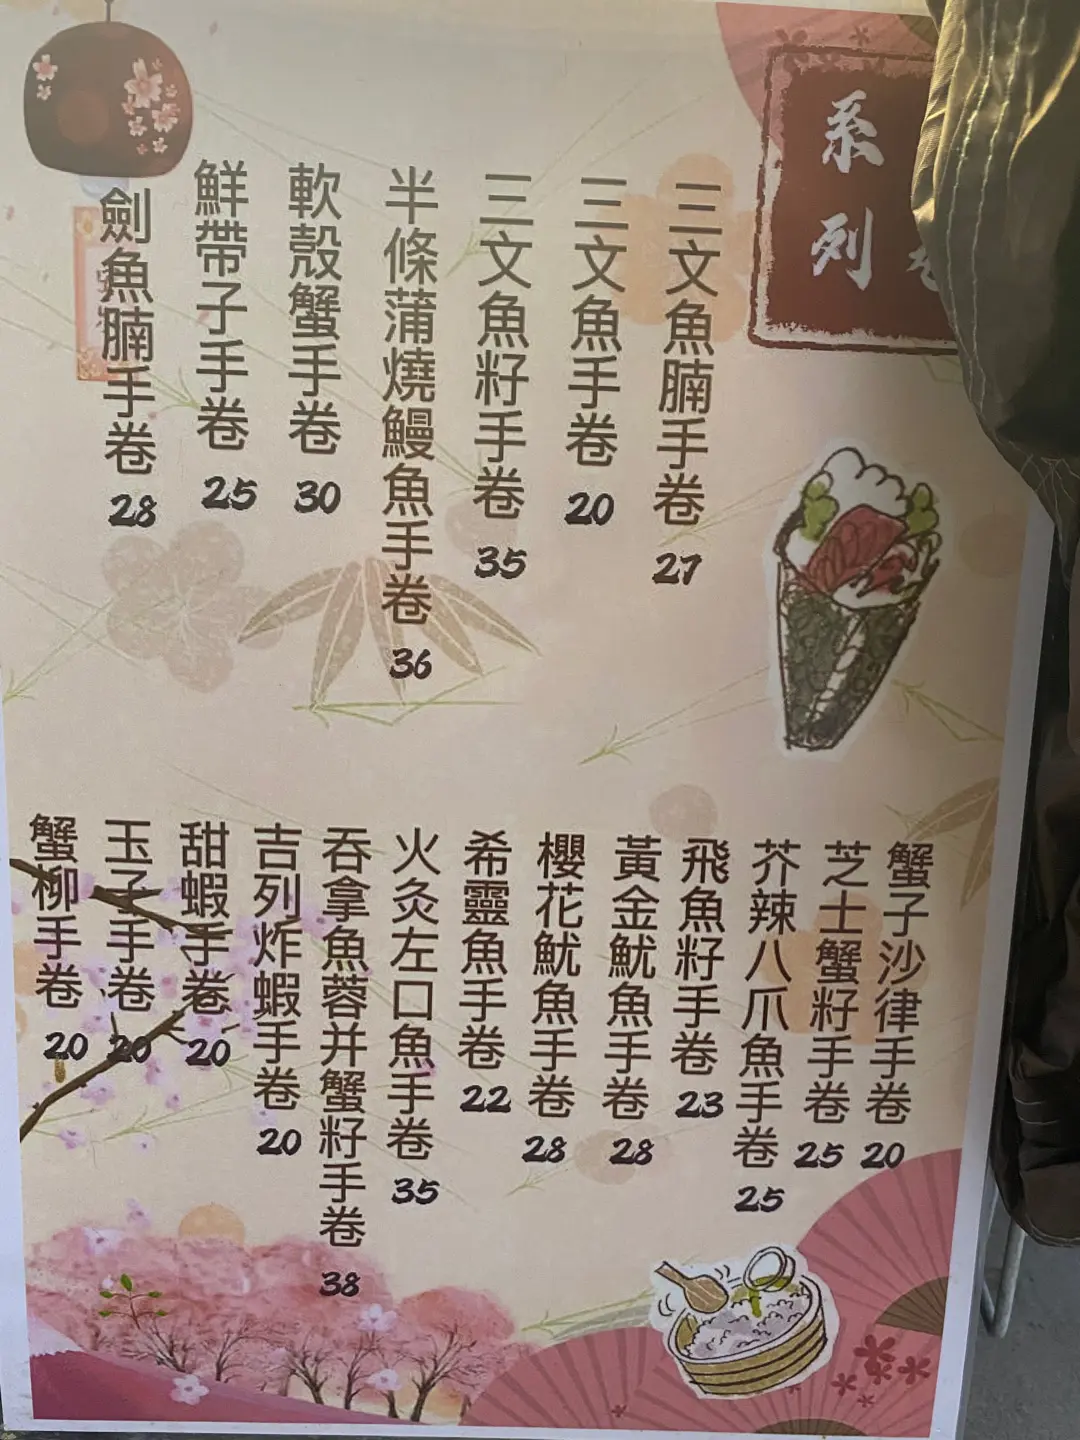 系列
三文魚腩手卷 27
三文魚手卷 20
三文魚籽手卷 35
半條蒲燒鰻魚手卷 36
軟殼蟹手卷 30
鮮帶子手卷 25
劍魚腩手卷 28
蟹子沙律手卷 20
芝士蟹籽手卷 25
芥辣八爪魚手卷 25
飛魚籽手卷 23
黃金魷魚手卷 28
櫻花魷魚手卷 28
希靈魚手卷 22
火灸左口魚手卷 35
吞拿魚蓉并蟹籽手卷 38
吉列炸蝦手卷 20
甜蝦手卷 20
玉子手卷 20
蟹柳手卷 20